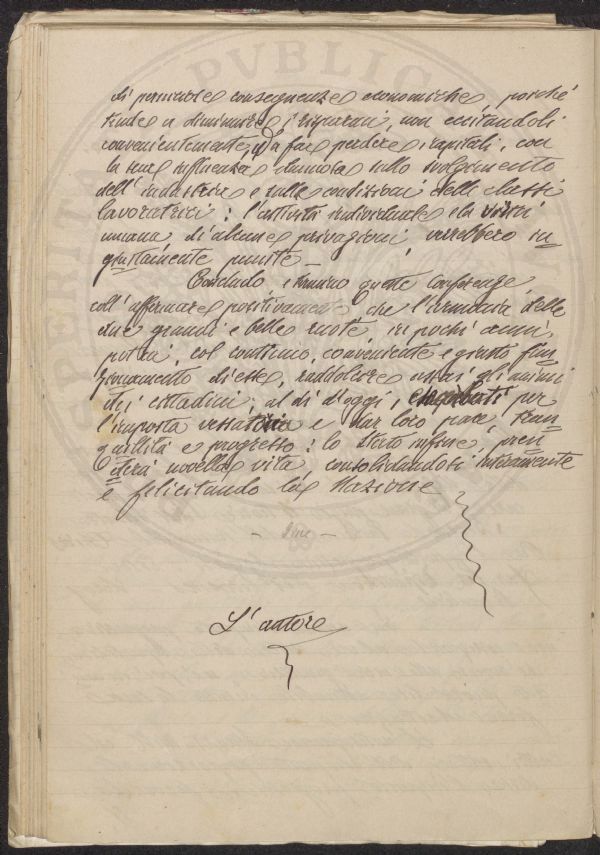 di perniciose conseguenze economiche, perché
tende a diminuire i risparmi, non eccitandoli
convenientemente, a far perdere capitali, con
la sua influenza dannosa sullo svolgimento
dell'industria e sulle condizioni delle classi
lavoratrici: l'attività individuale e la virtù
umana di alcune privazioni verrebbero in
giustamente punite—
Concludo, e termino queste Conferenze,
coll'affermare positivamente che l'armonia delle
due grandi e belle ruote in pochi anni,
potrà, col continuo, conveniente e giusto fun
zionamento di esse, raddolcire assai gli animi
dei cittadini; al dì d'oggi, esacerbati per
l'imposta vessatoria e dar loro pace, tran
quillità e progresso: lo Stato infine, pren
derà novella vita, consolidandosi interamente
e felicitando la Nazione
— Fine —
L'autore
PVBLIC